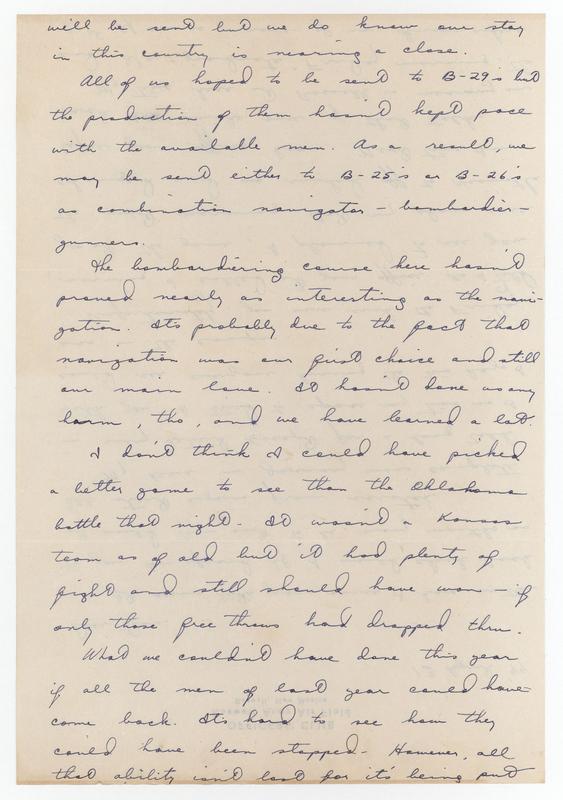 we'll be sent but we do know our stay
in this country is nearing a close.
All of us hoped to be sent to B-29's but
the production of them hasn't kept pace
with the available men. As a result, we
may be sent either to B-25's or B-26's
as combination navigator - bombardier -
gunners.
The bombardiering course here hasn't
proved nearly as interesting as the navi-
gation. Its probably due to the fact that
navigation was our first choice and still
our main love. It hasn't done us any
harm, tho, and we have learned a lot.
I don't think I could have picked
a better game to see than the Oklahoma
battle that night. It wasn't a Kansas
team as of old but it had plenty of
fight and still should have won - if
only those free throws had dropped thru.
What we couldn't have done this year
if all the men of last year could have
come back. It's hard to see how they
could have been stopped. However, all
that ability isn't lost for it's being put